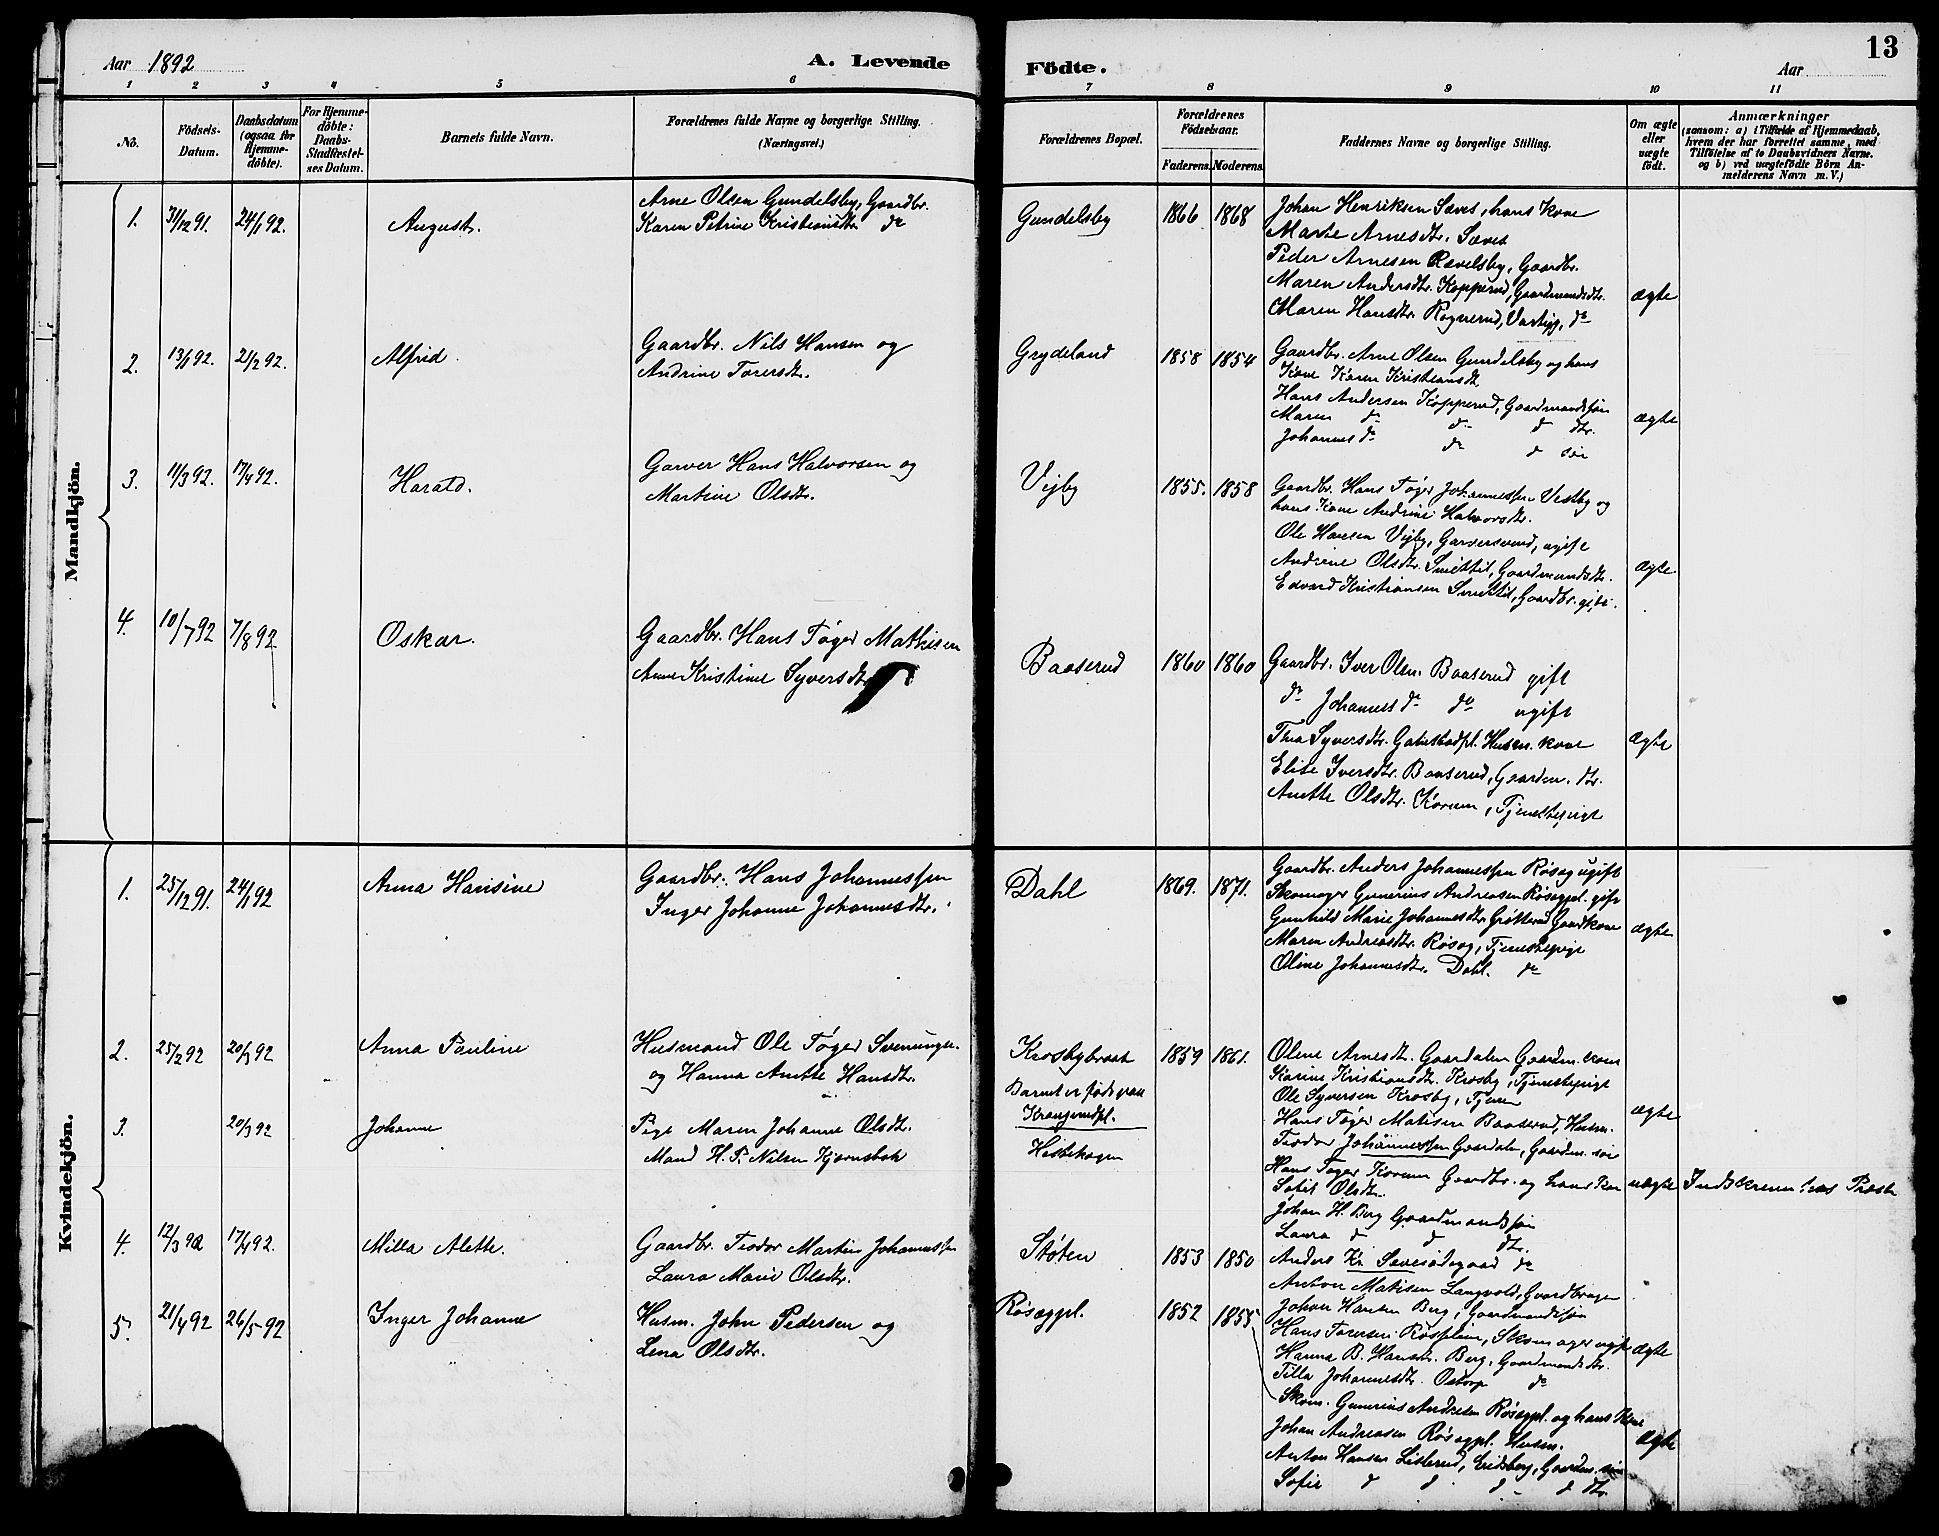 Aar 1892
A. Levende
Födte.
Aar
13
1 2 3 4 5 6 7 8 9 10 11
No.
Födsels-
Datum.
Daabsdatum
(ogsaa for
Hjemme-
döbte).
For Hjemme-
döbte:
Daabs-
Stadfæstel-
ses Datum.
Barnets fulde Navn.
Forældrenes fulde Navne og borgerlige Stilling.
(Næringsvei.)
Forældrenes Bopæl.
Forældrenes
Födselsaar.
Faderens. Moderens.
Faddernes Navne og borgerlige Stilling.
Om ægte
eller
uægte
födt.
Anmærkninger
(saasom: a) i Tilfælde af Hjemmedaab,
hvem der har forrettet samme, med
Tilföielse af to Daabsvidners Navne,
og b) ved uægtefödte Börn An-
melderens Navn m. V.)
Mandkjön.
1. 31/12 91. 24/1 92. August.
Arne Olsen Gundelsby, Gaardbr.
Karen Petrine Kristiansdtr. do
Gundelsby 1866 1868
Johan Henriksen Sæves, hans Kone
Marte Arnesdtr. Sæves
Peder Arnesen Rævelsby, Gaardbr.
Maren Andersdtr. Kopperud, Gaardmandsdtr.
Maren Hansdtr. Rognerud, do
ægte
2. 13/1 92. 21/2 92. Alfrid.
Gaardbr. Nils Hansen og
Andrine Torersdtr.
Grydeland 1858 1854
Gaardbr. Arne Olsen Gundelsby og hans
Kone Karen Kristiansdt
Hans Andersen Kopperud, Gaardmandssøn
Maren do do d dtr.
Johannes do do d søn
ægte
3. 11/3 92. 17/4 92. Harald.
Garver Hans Halvorsen og
Martine Olsdtr.
Vejby 1855. 1858
Gaardbr. Hans Tøger Johannessen Vestby og
hans Kone Andrine Halvorsdtr.
Ole Hansen Vejby, Garversvend, ugift
Andrine Olsdtr. Smedstil, Gaardmandsdtr.
Edvard Kristiansen Smedstil, Gaardbr. gift.
ægte
4. 10/7 92 7/8 92 Oskar.
Gaardbr. Hans Tøger Mathisen
Anne Kristine Syversdtr
Baaserud 1860 1860
Gaardbr. Iver Olsen Baaserud gift
do Johannes do do ugift
Thea Syversdtr. Husm. kone
Elise Iversdtr. Baaserud, Gaardm. dtr.
Anette Olsdtr. Korum, Tjenestepige
ægte
Kvindekjön.
1. 25/12 91. 24/1 92 Anna Hansine
Gaardbr. Hans Johannessen
Inger Johanne Johannesdtr.
Dahl 1869. 1871.
Gaardbr. Anders Johannessen Røsæg ugift
Skomager Gunerius Andreasen Røsægpl. gift
Gunhild Marie Johannesdtr. Gaardkone
Maren Andreasdtr. Røsæg, Tjenestepige
Oline Johannesdtr. Dahl. do
ægte
2. 25/2 92 20/3 92 Anna Pauline
Husmand Ole Tøger Svenungsen
og Hanna Anette Hansdtr.
Krosbybraat
Barnet er født paa
Krangerudpl.
1859 1861.
Olene Arnesdtr. Gaardalen Gaardm. kone
Karine Kristiansdtr. Krosby, Tjenestepige
Ole Syversen Krosby, Tjener
Hans Tøger Matisen Baaserud, Husm.
Teodor Johannessen Gaardalen, Gaardm. søn
ægte
3. 20/3 92 Johanne
Pige Maren Johanne Olsdtr.
Mand H. P. Nilsen Kjærnsbæk
Hestehagen
Hans Tøger Korum Gaardbr. og hans Kone
Sofie Olsdtr.
Johan H. Berg Gaardmandssøn
Laura d d dtr.
Anders Kr. Sævesødegaard do
uægte
Indskreven hos Præst
4. 12/3 92 17/4 92. Milla Alette.
Gaardbr. Teodor Martin Johannessen
Laura Marie Olsdtr.
Støten 1853 1850
Anton Matisen Langvold, Gaardbruger
Johan Hansen Berg, Gaardmandssøn
Hans Torersen Skomager ugift
Hanna B. Hansdtr. Berg, Gaardmandsdtr.
Tilla Johannesdtr. Ostorp do
ægte
5. 21/4 92 26/5 92 Inger Johanne
Husm. John Pedersen og
Lena Olsdtr.
Røsægpl. 1852 1855
Skom. Gunerius Andresen Røsægpl. og hans Kone
Johan Andreasen Røsægpl. Husm.
Anton Hansen Listerud, Eidsberg, Gaardm. søn
Sofie d d d d dtr
ægte